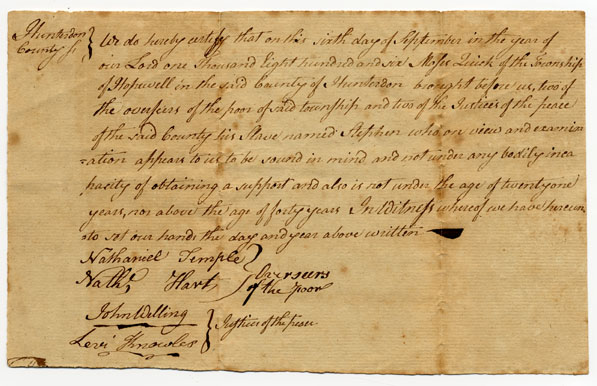 Hunterdon
County ss } We do hereby certify that on this sixth day of September in the year of
our Lord one Thousand Eight hundred and six Moses Quick of the Township
of Hopewell in the said County of Hunterdon brought before us, two of
the overseers of the poor of said township and two of the Justices of the peace
of the said County his Slave named Stephen who on view and examin
=ation appears to us to be sound in mind and not under any bodily inca
pacity of obtaining a support and also is not under the age of twenty one
years, nor above the age of forty years In Witness whereof we have hereun
=to set our hands the day and year above written
Nathaniel Temple
Nathl Hart } Overseers
of the Poor
John Welling
Levi Knowles } Justices of the peace